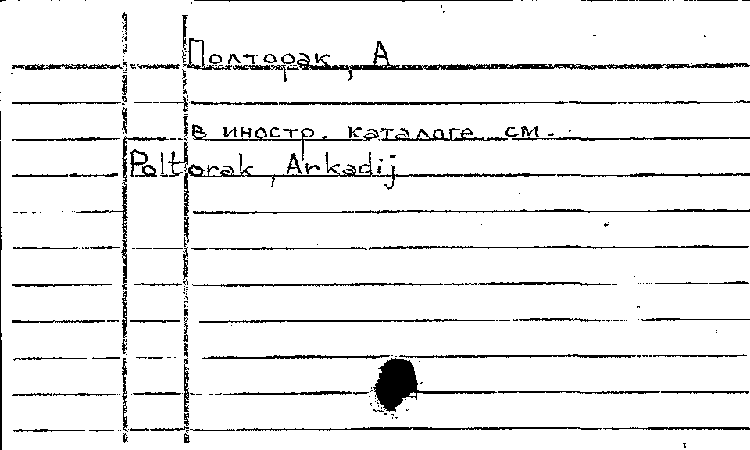 Полторак, А
в иностр. каталоге см.
Poltorak, Arkadij